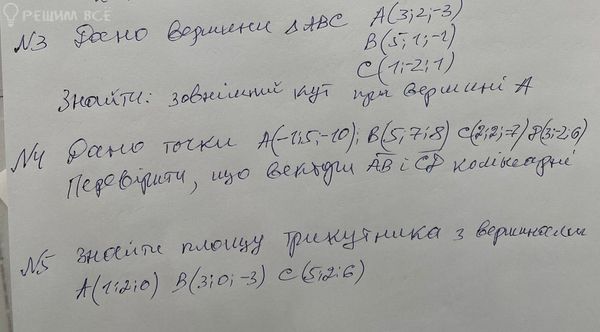 РЕШИМ ВСЁ
N3 Дано вершини △ABC A(3;2;-3)
B(5;1;-1)
C(1;-2;1)
Знайти: зовнішний кут при вершині A
N4 Дано точки A(-1;5;-10); B(5;7;8) C(2;2;-7) D(3;-2;6)
Перевірити, що вектори AB і CD колінеарні
N5 Знайти площу трикутника з вершинами
A(1;2;0) B(3;0;-3) C(5;2;6)